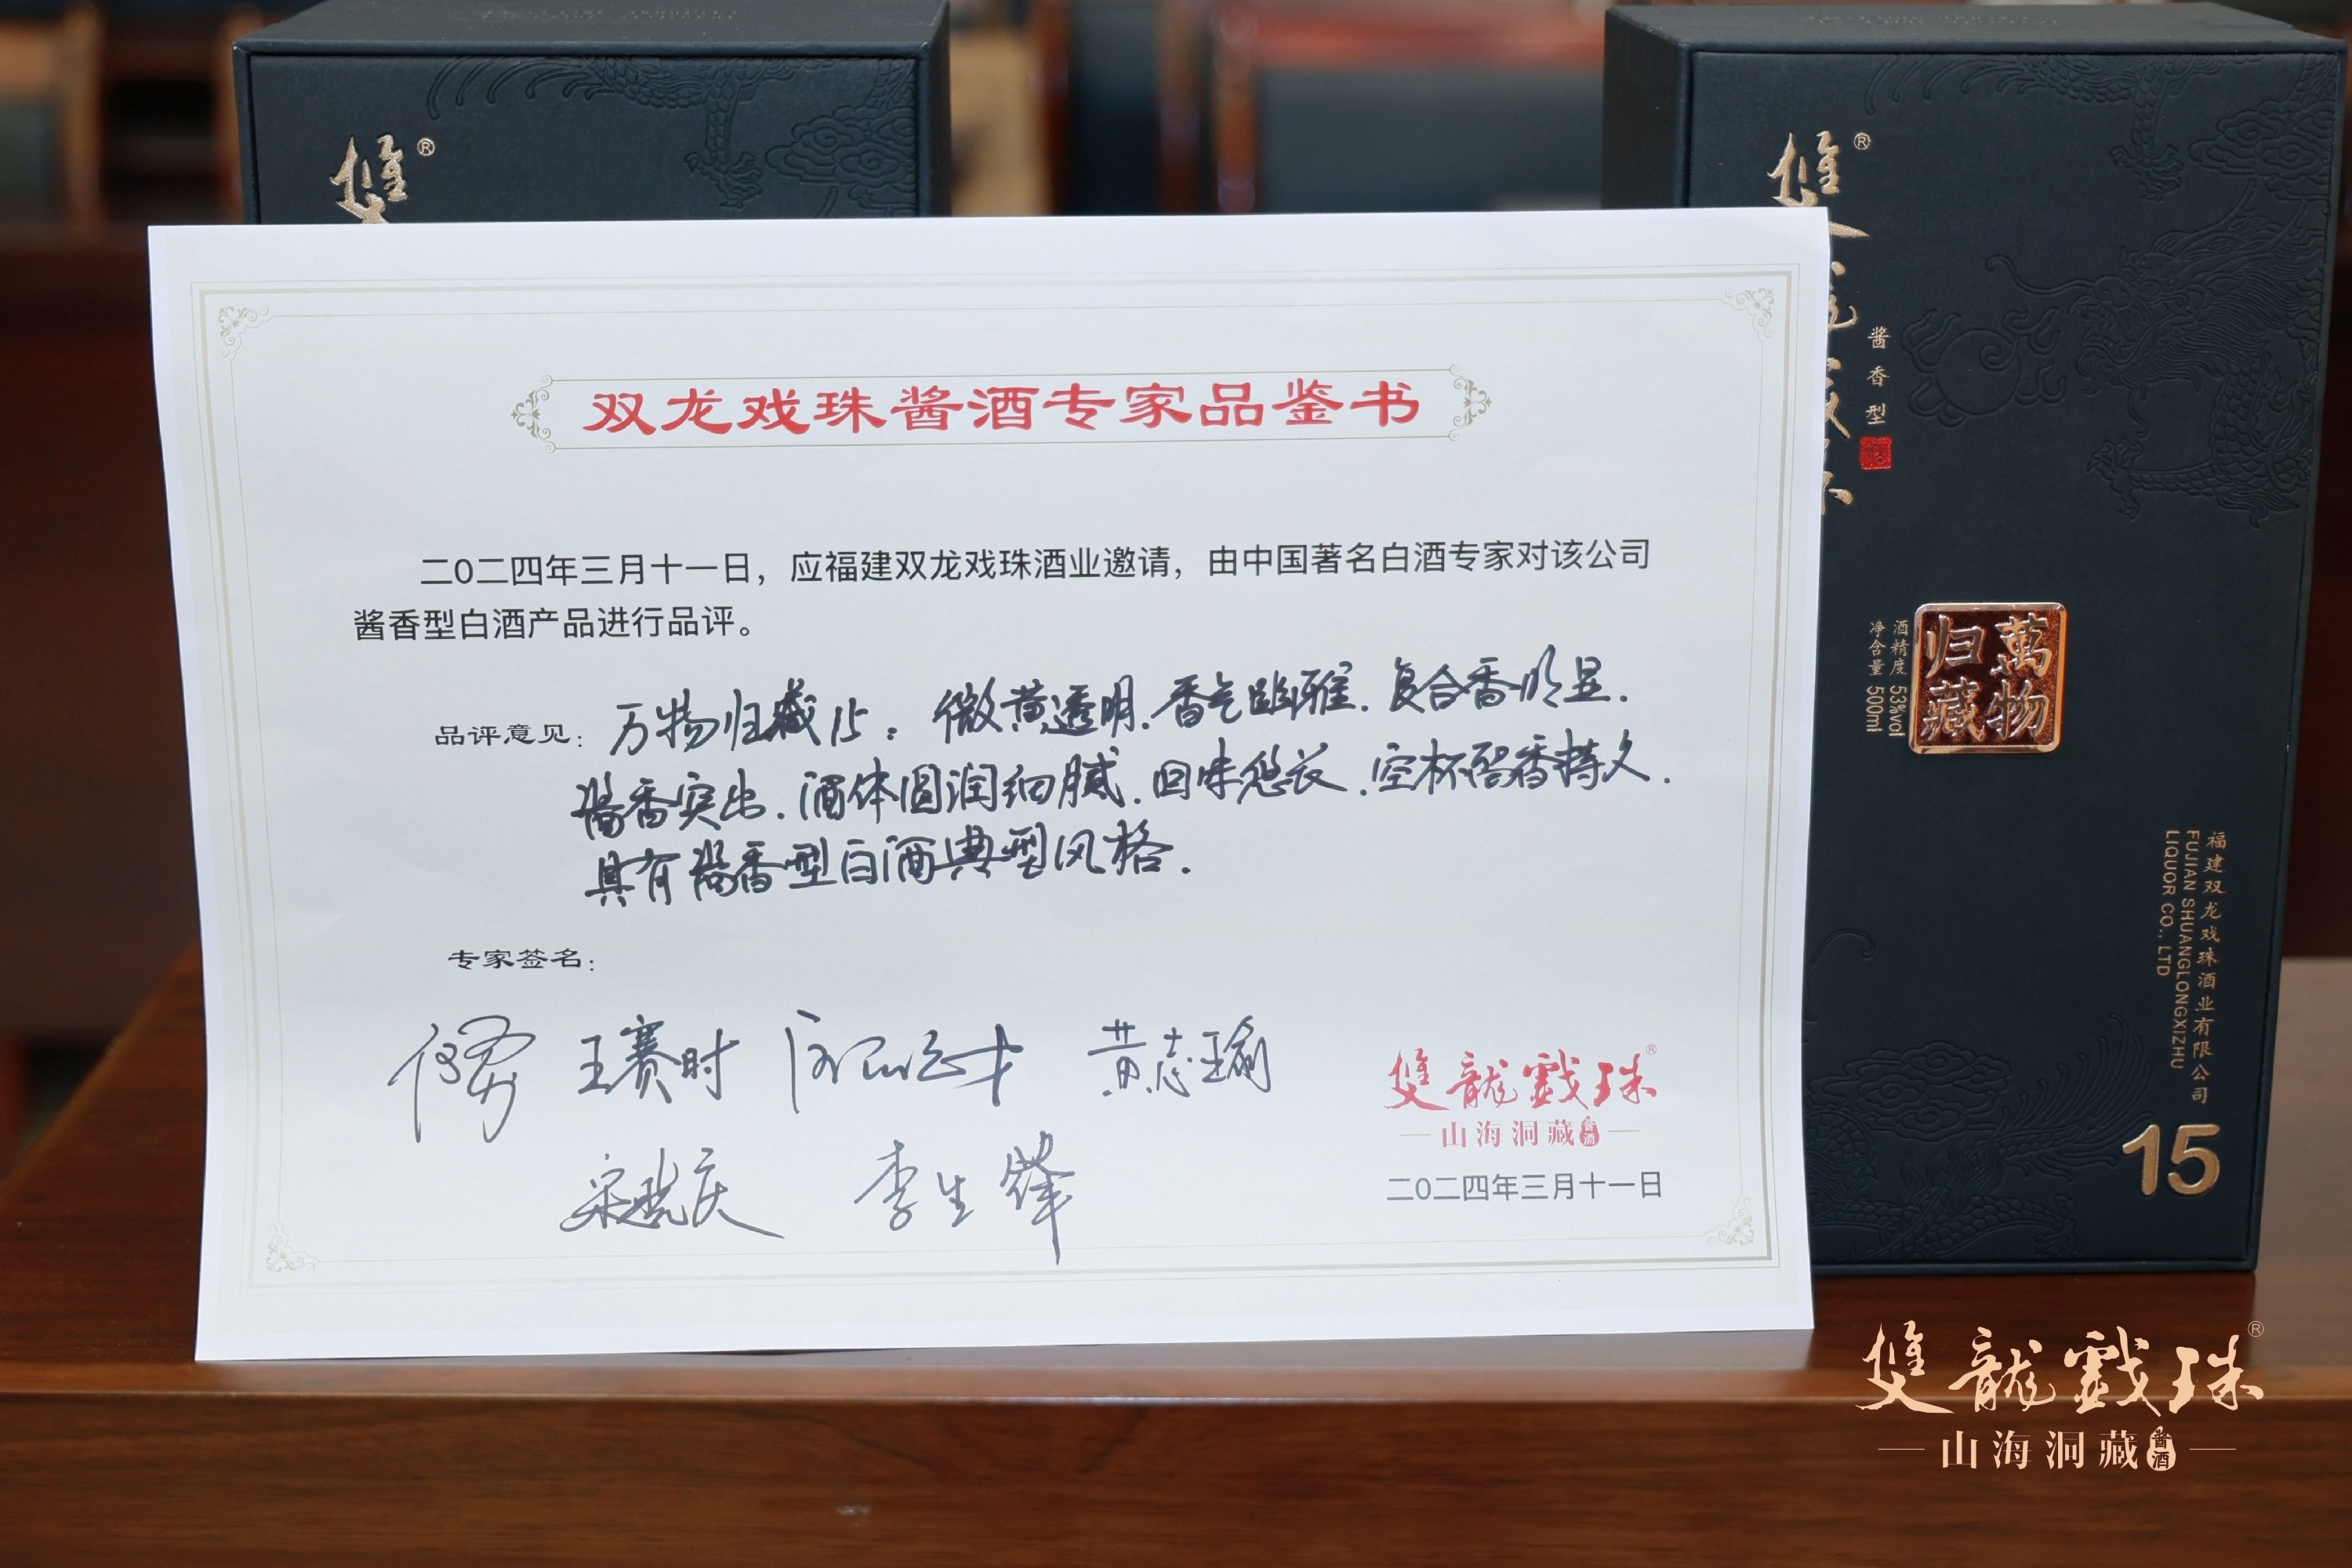 双龙戏珠酱酒专家品鉴书
二0二四年三月十一日，应福建双龙戏珠酒业邀请，由中国著名白酒专家对该公司
酱香型白酒产品进行品评。
品评意见：万物归藏15：微黄透明.香气幽雅.复合香明显.
酱香突出.酒体圆润细腻.回味悠长.空杯留香持久.
具有酱香型白酒典型风格.
专家签名：
王赛时 黄志瑜
李生锋
雙龍戲珠®
山海洞藏 酱酒
二0二四年三月十一日
雙®
雙®
酱香型
萬物
归藏
酒精度 53%vol
净含量 500ml
福建双龙戏珠酒业有限公司
FUJIAN SHUANGLONGXIZHU
LIQUOR CO., LTD
15
雙龍戲珠®
山海洞藏 酱酒